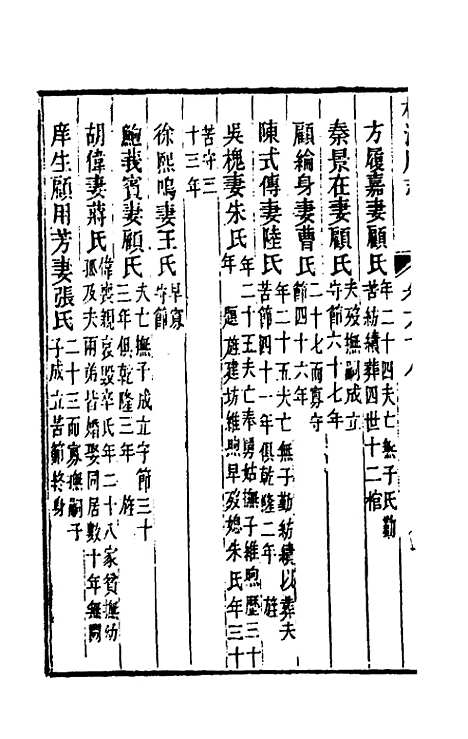 方履嘉妻顧氏年二十四夫亡無子氏勤
苦紡績葬四世十二棺
秦景在妻顧氏夫歿撫嗣成立
守節六十七年
顧綸身妻曹氏二十七而寡守
節四十六年
陳式傳妻陸氏年二十五夫亡無子勤紡績以葬夫
苦節四十一年俱乾隆二年旌
吳槐妻朱氏年二十五夫亡奉舅姑撫子維煦歷三十
年題旌建坊維煦早歿媳朱氏年三十
苦守三
十三年
徐熙鳴妻王氏早寡
守節
鮑我賓妻顧氏夫亡撫子成立守節三十
三年俱乾隆三年旌
胡偉妻蔣氏偉喪親哀毀卒氏年二十八家貧撫幼
孤及夫兩弟皆婚娶同居數十年無間
庠生顧用芳妻張氏二十三而寡撫嗣子
子成立苦節終身